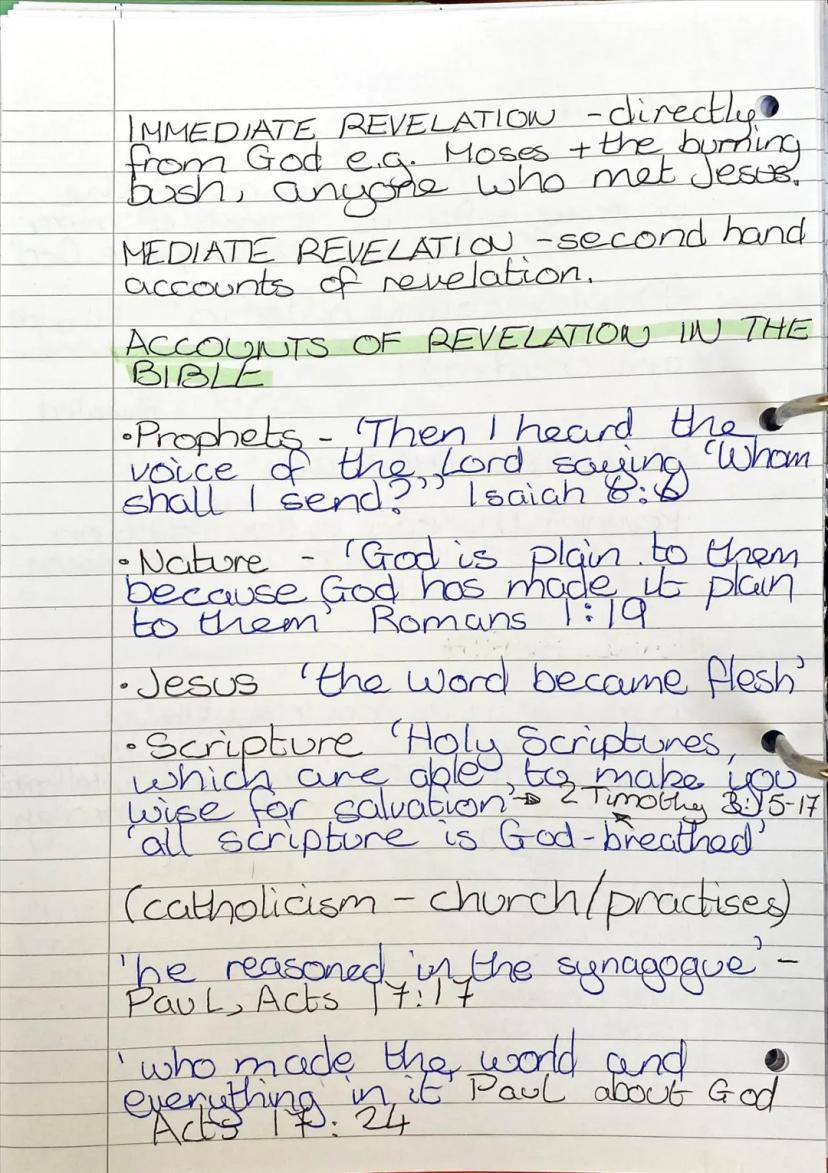 IMMEDIATE REVELATION - directly
from God e.g. Moses + the burning
bush, anyone who met Jesus.
MEDIATE REVELATIO - second hand
accounts of revelation.
ACCOUNTS OF REVELATION IN THE
BIBLE
•Prophets - 'Then I heard the
voice of the Lord saying 'Whom
shall I send?'' Isaiah 6:8
•Nature - 'God is plain to them
because God has made it plain
to them' Romans 1:19
•Jesus 'the Word became flesh'
•Scripture 'Holy Scriptures,
which are able to make you
wise for salvation' → 2 Timothy 3:15-17
'all scripture is God-breathed'
(catholicism - church/practises)
'he reasoned in the synagogue' -
Paul, Acts 17:17
'who made the world and
everything in it' Paul about God
Acts 17:24